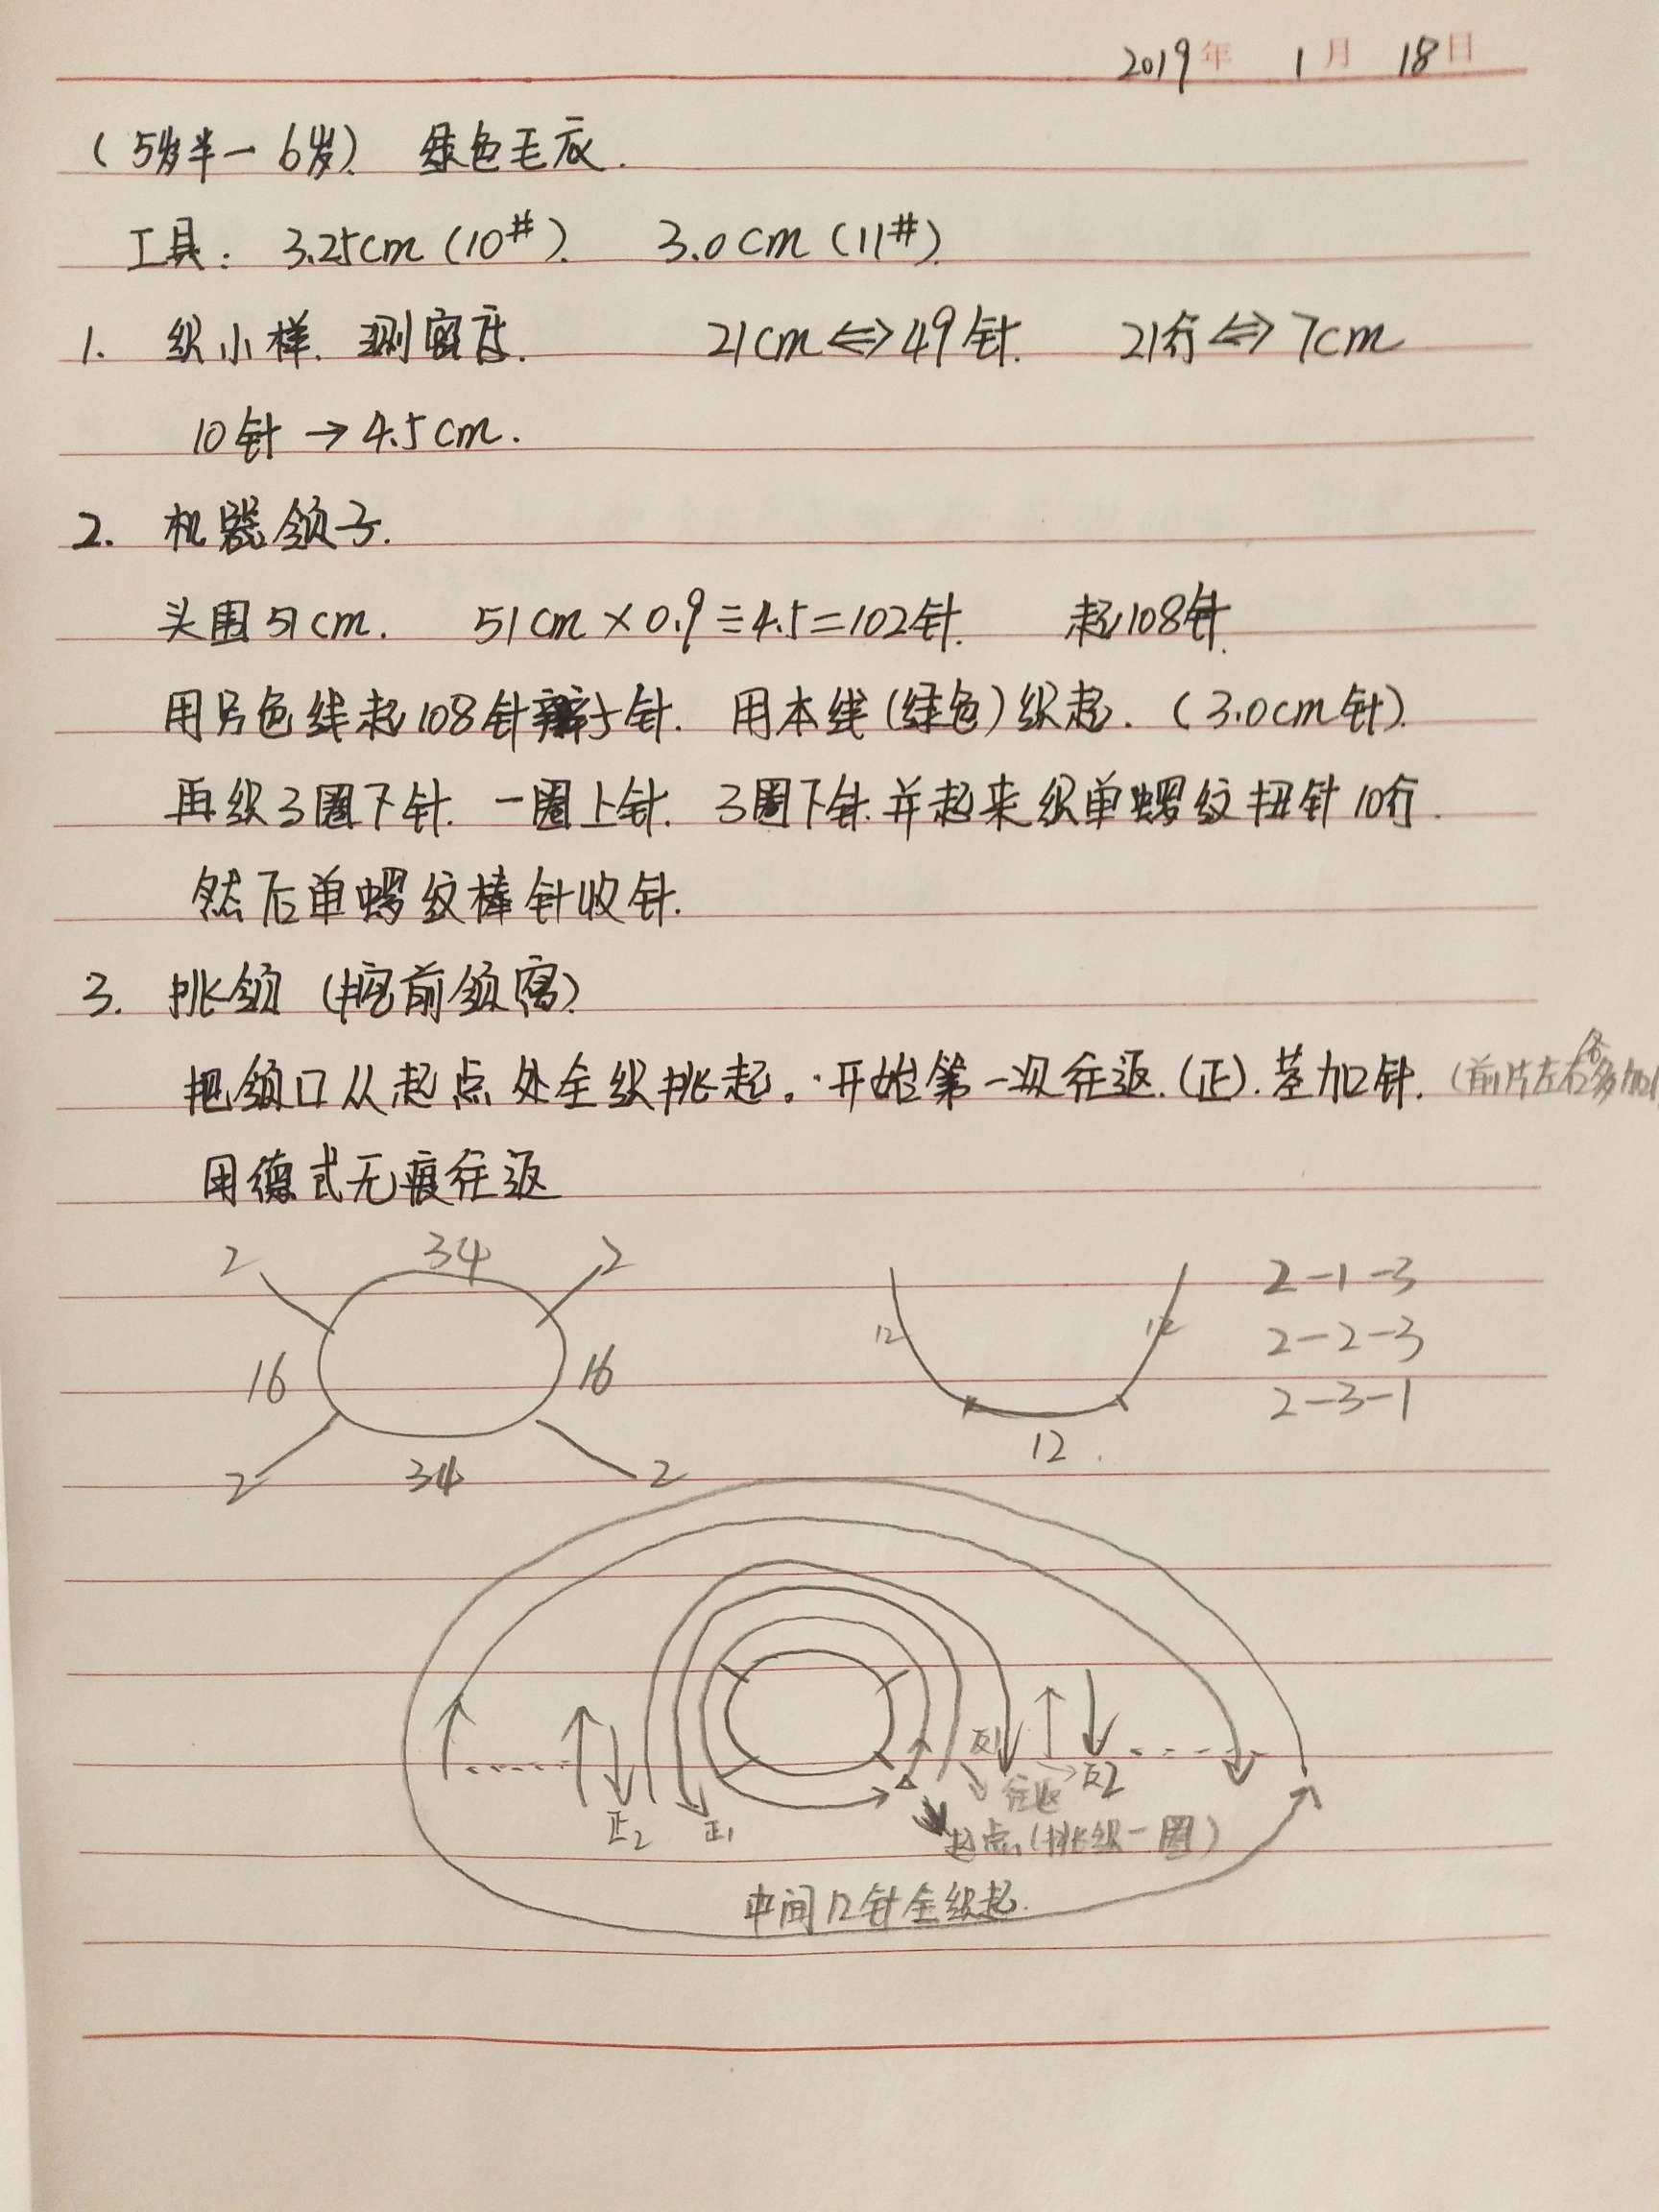 2019年 1月 18日
(5岁半－6岁). 绿色毛衣.
工具: 3.25cm (10#). 3.0cm (11#).
1. 织小样. 测密度. 21cm⇔49针. 21行⇔7cm
10针→4.5cm.
2. 机器领子.
头围51cm. 51cm×0.9÷4.5=102针. 起108针.
用另色线起108针辫子针. 用本线(绿色)织起. (3.0cm针).
再织3圈下针. 一圈上针. 3圈下针.并起来织单螺纹扭针10行.
然后单螺纹棒针收针.
3. 挑领 (挖前领窝)
把领口从起点处全织挑起. 开始第一次往返.(正). 茎加2针. (前片左右各多加1
用德式无痕往返
2 34 2
16 16
2 34 2
12 12
12.
2-1-3
2-2-3
2-3-1
反1
往返 反2
正2 正1
起点(挑织一圈)
中间12针全织起.